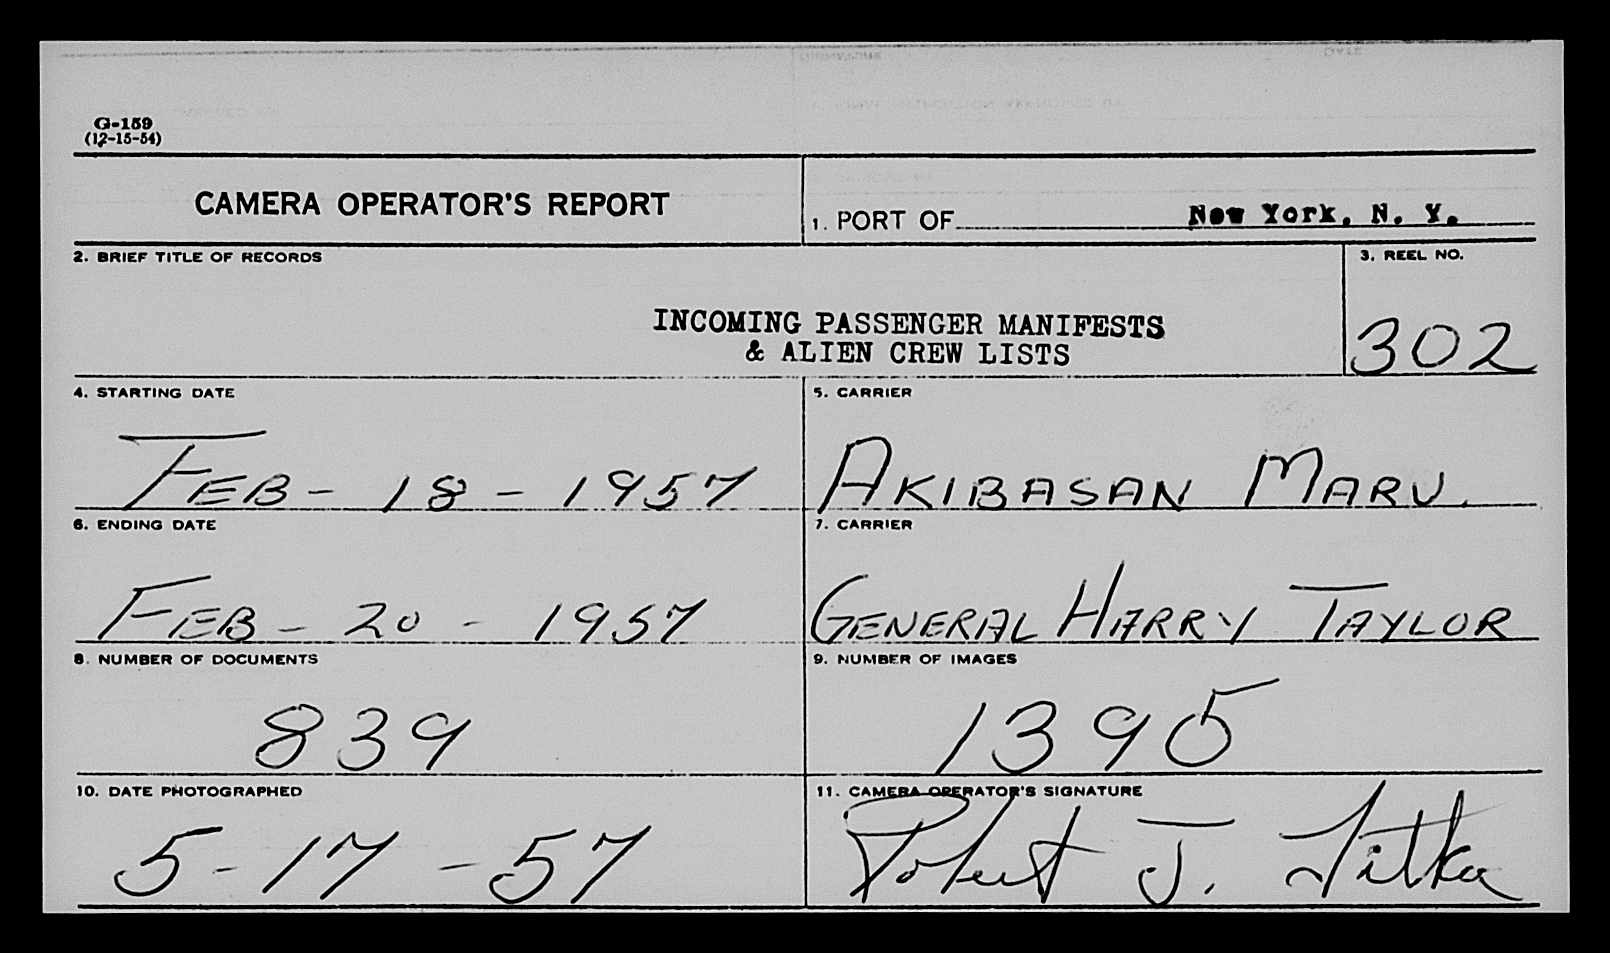 G-159
(12-15-54)
CAMERA OPERATOR'S REPORT
1. PORT OF New York, N. Y.
2. BRIEF TITLE OF RECORDS
INCOMING PASSENGER MANIFESTS
& ALIEN CREW LISTS
3. REEL NO.
302
4. STARTING DATE
FEB - 18 - 1957
5. CARRIER
AKIBASAN MARU
6. ENDING DATE
FEB - 20 - 1957
7. CARRIER
GENERAL HARRY TAYLOR
8. NUMBER OF DOCUMENTS
839
9. NUMBER OF IMAGES
1395
10. DATE PHOTOGRAPHED
5-17-57
11. CAMERA OPERATOR'S SIGNATURE
Robert J.